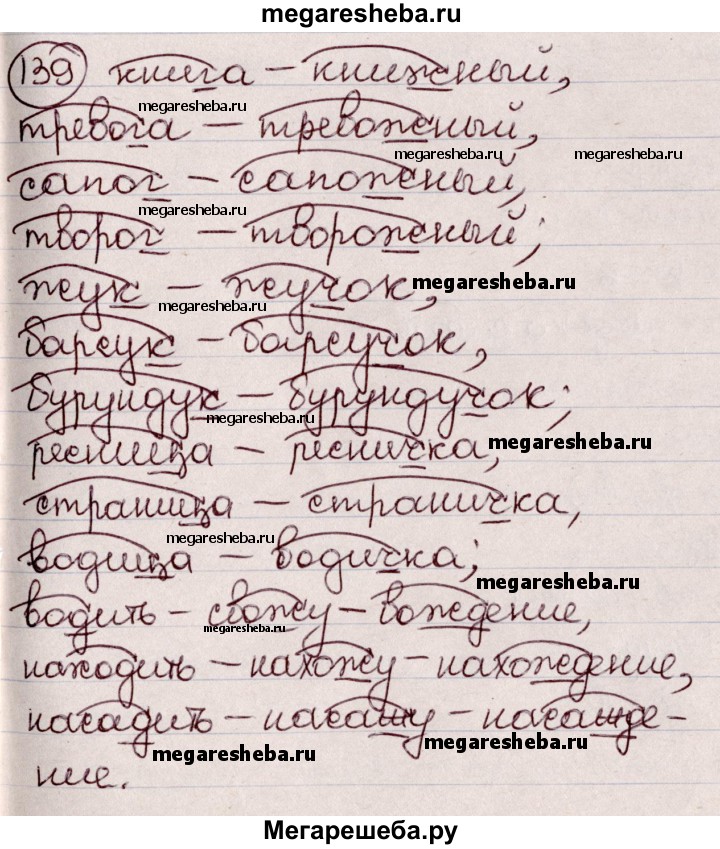 megaresheba.ru
139 книга – книжный,
megaresheba.ru
тревога – тревожный,
megaresheba.ru megaresheba.ru
сапог – сапожный,
творог – творожный;
жук – жучок, megaresheba.ru
megaresheba.ru
барсук – барсучок,
бурундук – бурундучок;
megaresheba.ru
ресница – ресничка, megaresheba.ru
страница – страничка,
megaresheba.ru
водица – водичка;
megaresheba.ru
водить – свожу – вождение,
megaresheba.ru
находить – нахожу – нахождение,
насадить – насажу – насажде-
megaresheba.ru megaresheba.ru
ние.
Мегарешеба.ру